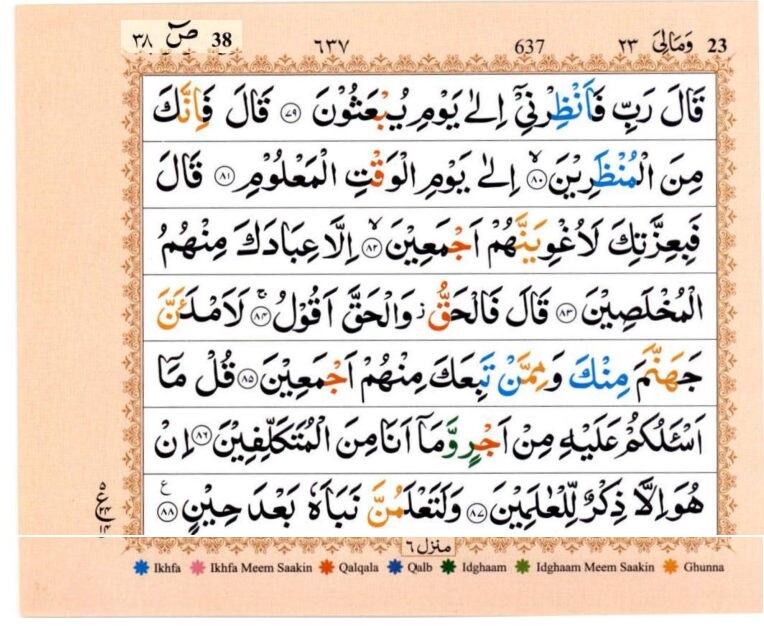 ٣٨ صٓ 38 ٦٣٧ 637 وَمَالِیَ ٢٣ 23
قَالَ رَبِّ فَاَنْظِرْنِیْۤ اِلٰی یَوْمِ یُبْعَثُوْنَ ﴿٧٩﴾ قَالَ فَاِنَّكَ
مِنَ الْمُنْظَرِیْنَ ﴿٨٠﴾ۙ اِلٰی یَوْمِ الْوَقْتِ الْمَعْلُوْمِ ﴿٨١﴾ قَالَ
فَبِعِزَّتِكَ لَاُغْوِیَنَّهُمْ اَجْمَعِیْنَ ﴿٨٢﴾ۙ اِلَّا عِبَادَكَ مِنْهُمُ
الْمُخْلَصِیْنَ ﴿٨٣﴾ قَالَ فَالْحَقُّ ؗ وَالْحَقَّ اَقُوْلُ ﴿٨٤﴾ۚ لَاَمْلَـَٔنَّ
جَهَنَّمَ مِنْكَ وَمِمَّنْ تَبِعَكَ مِنْهُمْ اَجْمَعِیْنَ ﴿٨٥﴾ قُلْ مَاۤ
اَسْـَٔلُكُمْ عَلَیْهِ مِنْ اَجْرٍ وَّمَاۤ اَنَا مِنَ الْمُتَكَلِّفِیْنَ ﴿٨٦﴾ اِنْ
هُوَ اِلَّا ذِكْرٌ لِّلْعٰلَمِیْنَ ﴿٨٧﴾ وَلَتَعْلَمُنَّ نَبَاَهٗ بَعْدَ حِیْنٍ ﴿٨٨﴾ ع
منزل ٦
Ikhfa Ikhfa Meem Saakin Qalqala Qalb Idghaam Idghaam Meem Saakin Ghunna